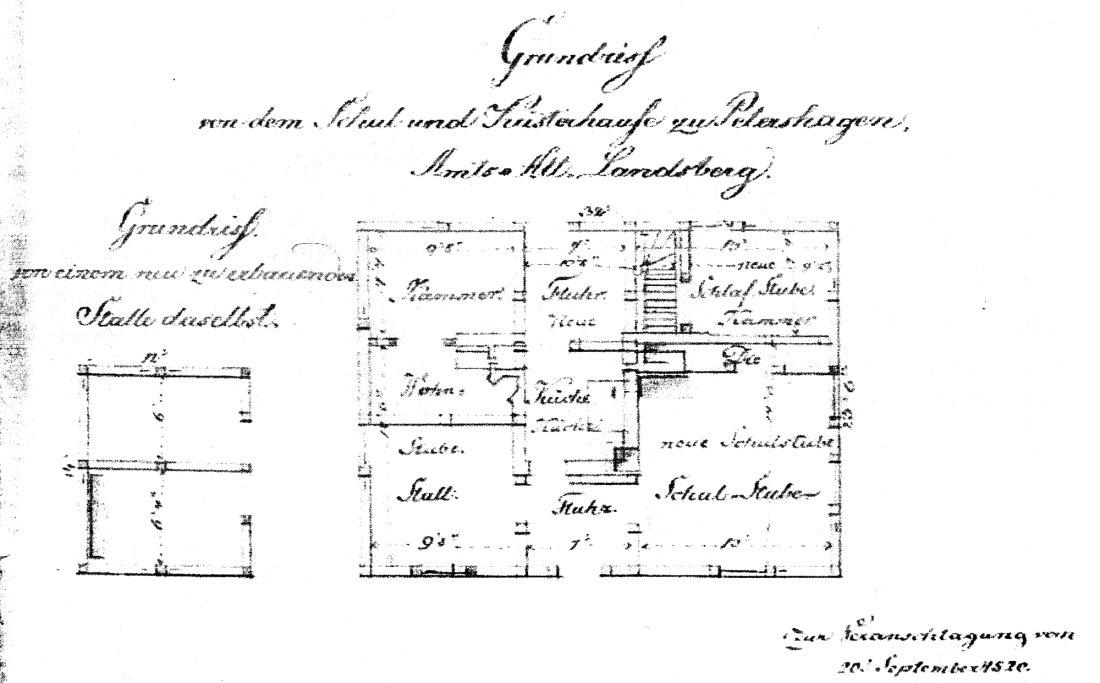 Grundriss
von dem Schul und Küsterhause zu Petershagen,
Amts Alt-Landsberg.
Grundriss.
von einem neu zu erbauenden
Stalle daselbst.
32'
9'5" 7' 13'
10'
neue 9'6"
Kammer. Fluhr. Schlaf Stube
Neue Kammer
Wohn- Küche
Küche
Stube. neue Schulstube
Stall. Schul-Stube
Fluhr.
9'5" 7' 13'
11'
6'
14'
6'
Zur Veranschlagung vom
20t September 1820.